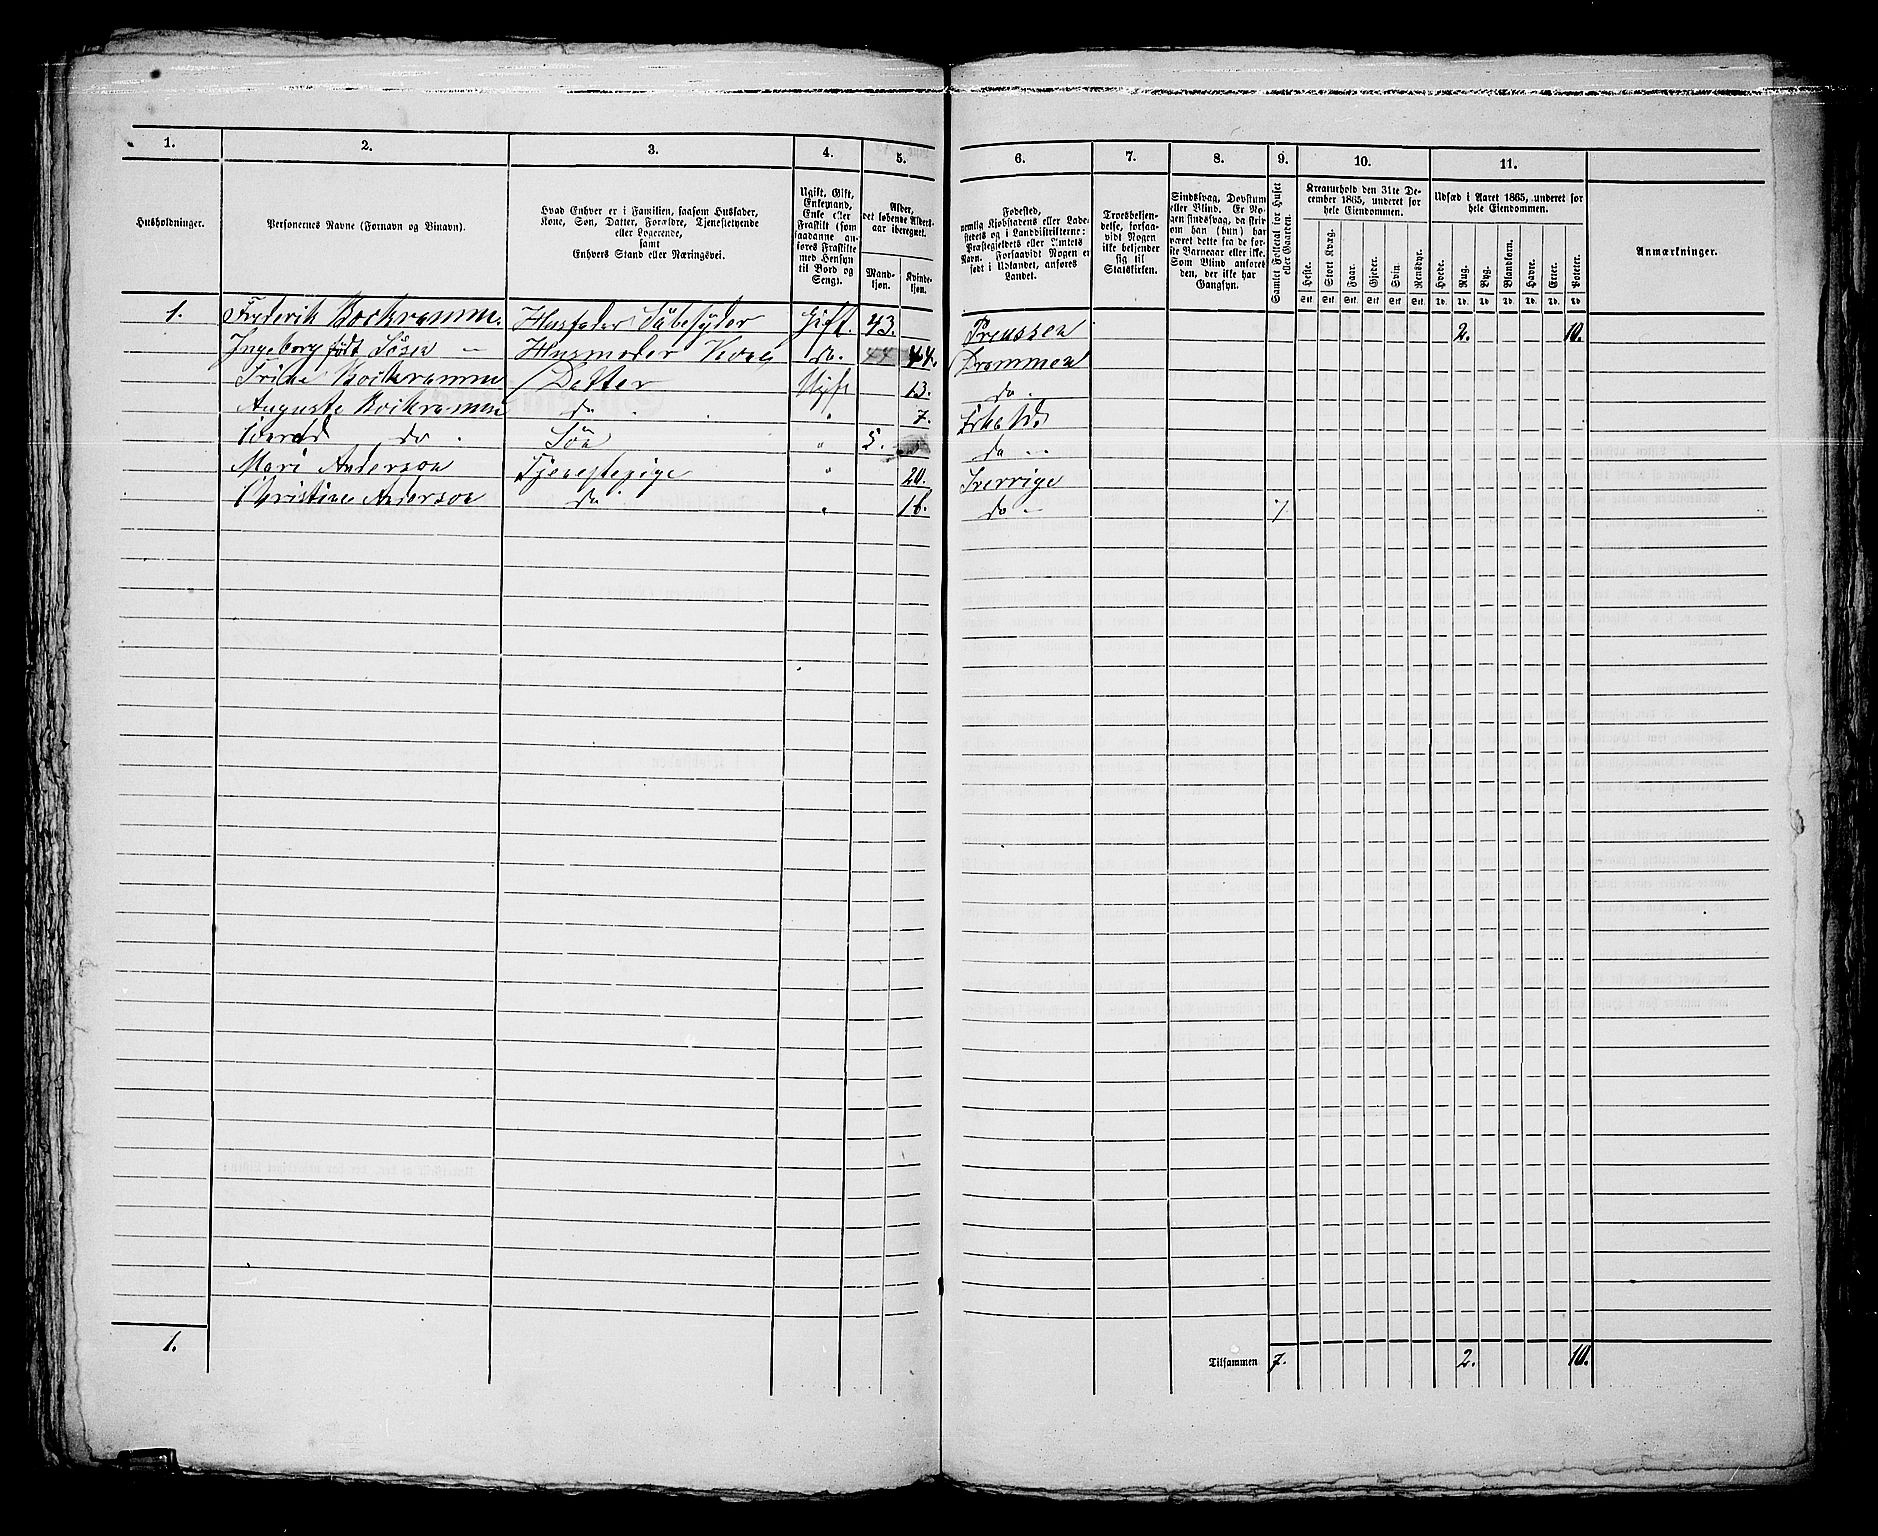 1. 2. 3. 4. 5. 6. 7. 8. 9. 10. 11.
Husholdninger.
Personernes Navne (Fornavn og Binavn).
Hvad Enhver er i Familien, saasom Husfader,
Kone, Søn, Datter, Forældre, Tjenestetyende
eller Logerende,
samt
Enhvers Stand eller Næringsvei.
Ugift, Gift,
Enkemand,
Enke eller
Fraskilt (som
saadanne an-
føres Fraskilte
med Hensyn
til Bord og
Seng).
Alder,
det løbende Alders-
aar iberegnet.
Mand-
kjøn.
Kvinde-
kjøn.
Fødested,
nemlig Kjøbstadens eller Lade-
stedets og i Landdistrikterne:
Præstegjeldets eller Amtets
Navn. Forsaavidt Nogen er
født i Udlandet, anføres
Landet.
Troesbekjen-
delse, forsaa-
vidt Nogen
ikke bekjender
sig til
Statskirken.
Sindssvag, Døvstum
eller Blind. Er No-
gen sindssvag, da skriv
om han (hun) har
været dette fra de før-
ste Barneaar eller ikke.
Som Blind anføres
den, der ikke har
Gangsyn.
Samlet Folketal for Huset
eller Gaarden.
Kreaturhold den 31te De-
cember 1865, underet for
hele Eiendommen.
Heste. Stort Kvæg. Faar. Gjeder. Svin. Rensdyr.
Stk. Stk. Stk. Stk. Stk. Stk.
Udsæd i Aaret 1865, underet for
hele Eiendommen.
Hvede. Rug. Byg. Blandkorn. Havre. Erter. Poteter.
Td. Td. Td. Td. Td. Td. Td.
Anmærkninger.
1. Frederik Bockramm. Husfader Sæbesyder Gift. 43. Preussen 2. 10.
Ingeborg født Husmoder do. 44 44. Drammen
Trine Bockramm Datter Ugift 13. do.
Auguste Bockramm do 7.
do. Søn " 5. do
Mari Anderson Tjenestepige " 20. Sverrige
Christine Anderson do " 16. do 7.
1. Tilsammen 7. 2. 10.